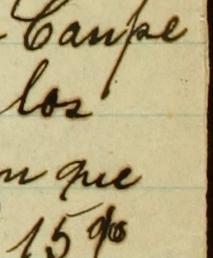 Campe
los
n que
15 %